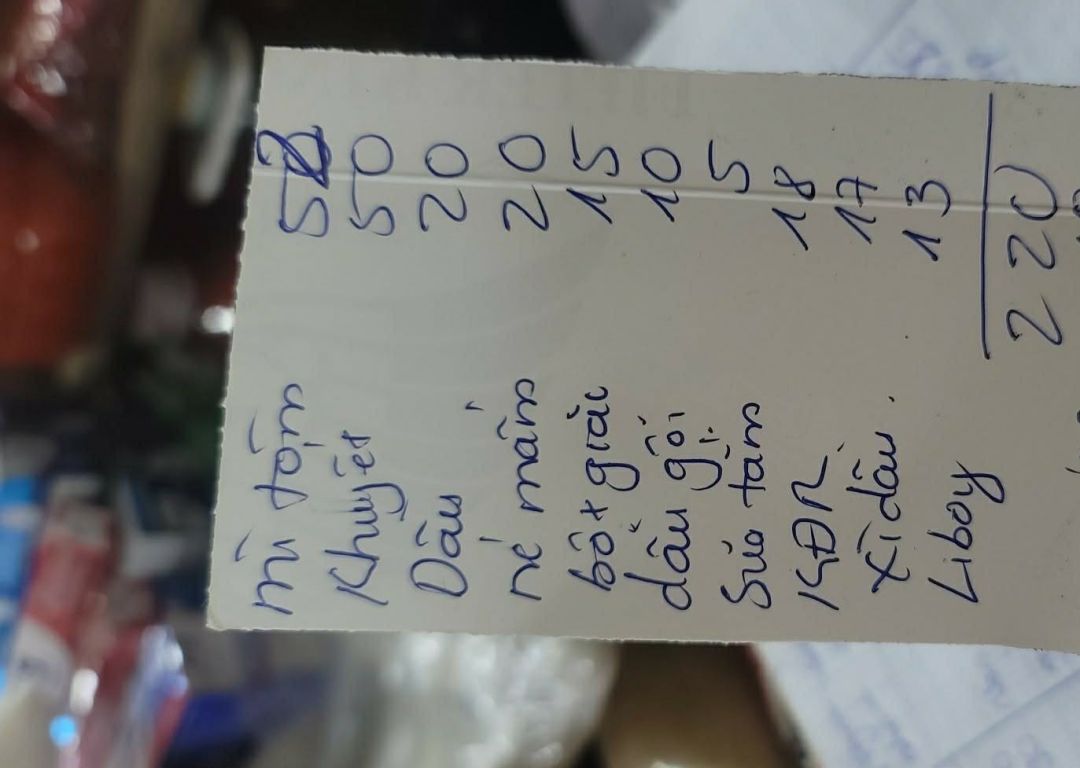 mì tôm 52
Khuyêt 50
Dâu 20
né mắm 20
bôt giăc 15
dâu gội 10
Sưa tăm 5
KĐR 18
Xì dâu 17
Liboy 13
220